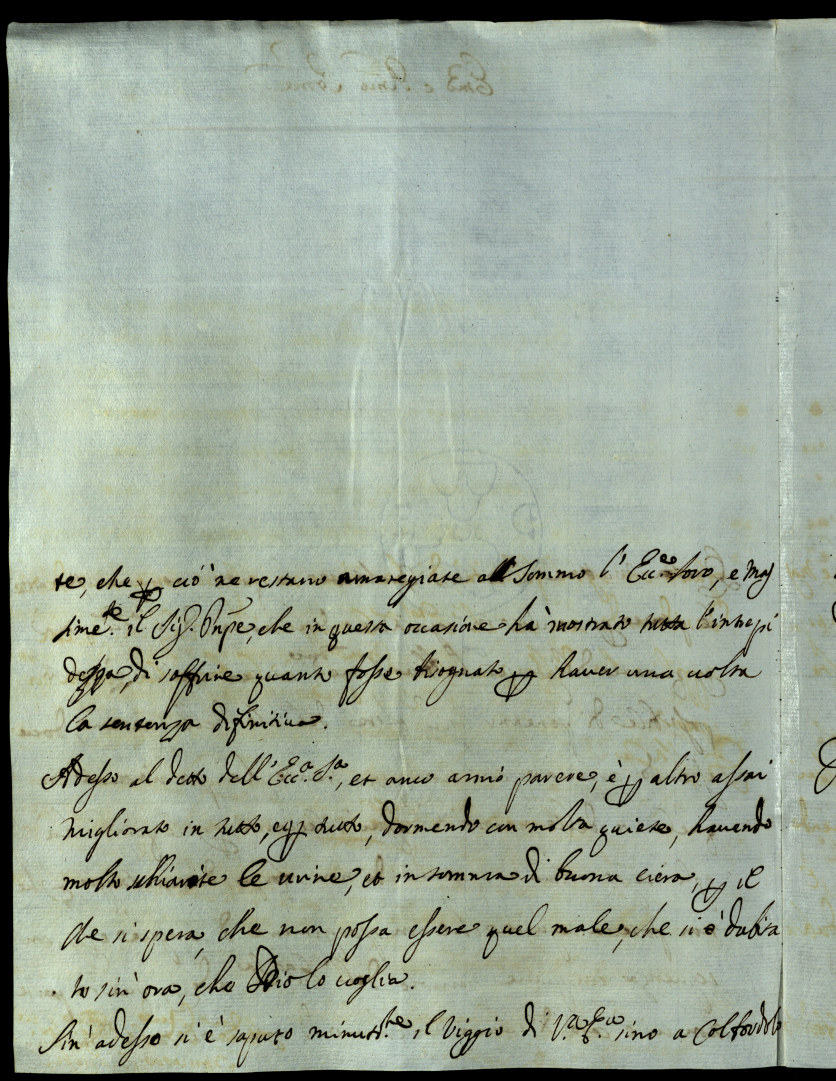 te, che p ciò ne restano amaregiate al sommo l'Ecc.e loro, e mas
sime.te il Sig.r Pñpe, che in questa occasione ha mostrato tutta l'intrepi
dezza, di soffrire quanto fosse bisognato p haver una volta
la sentenza difinitiva.
Adesso al detto dell'Ecc.a S.a, et anco à mio parere, è p altro assai
migliorato in tutto, e p tutto, dormendo con molta quiete, havendo
molto schiarite le urine, et in somma di buona ciera, p il
che si spera, che non possa essere quel male, che si è dubita
to sin' ora, che Dio lo voglia.
Sin' adesso si è saputo minut.te il Viggio di V.a E.a sino a